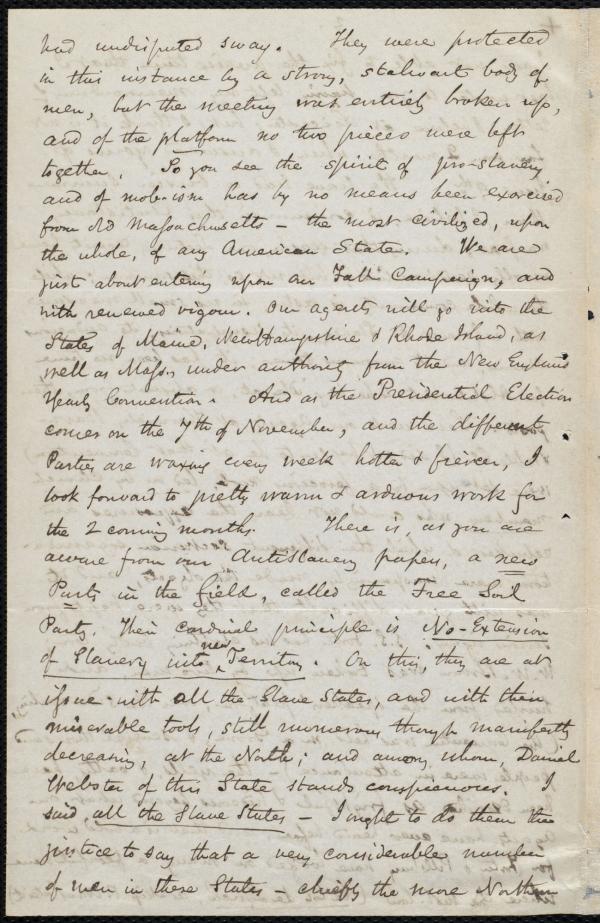 had undisputed sway. They were protected
in this instance by a strong, stalwart body of
men, but the meeting was entirely broken up,
and of the platform no two pieces were left
together. So you see the spirit of pro-slavery
and of mob-ism has by no means been exorcised
from old Massachusetts – the most civilized, upon
the whole, of any American State. We are
just about entering upon our Fall Campaign, and
with renewed vigour. Our agents will go into the
States of Maine, New Hampshire & Rhode Island, as
well as Mass. under authority from the New England
Yearly Convention. And as the Presidential Election
comes on the 7th of November, and the different
Parties are waxing every week hotter & fiercer, I
look forward to pretty warm & arduous work for
the 2 coming months. There is, as you are
aware from our Antislavery papers, a new
Party in the field, called the Free Soil
Party. Their cardinal principle is No-Extension
of Slavery into new Territory. On this, they are at
issue with all the Slave States, and with their
miserable tools, still numerous though manifestly
decreasing, at the North; and among whom, Daniel
Webster of this State stands conspicuous. I
said all the Slave States – I ought to do them the
justice to say that a very considerable number
of men in these States – chiefly the more Northern